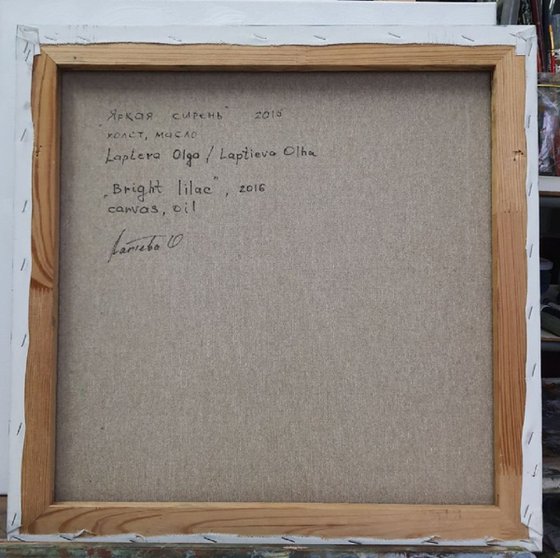 Яркая сирень" 2016
холст, масло
Laptera Olga / Laptieva Olha
„Bright lilac", 2016
canvas, oil
Лаптева О